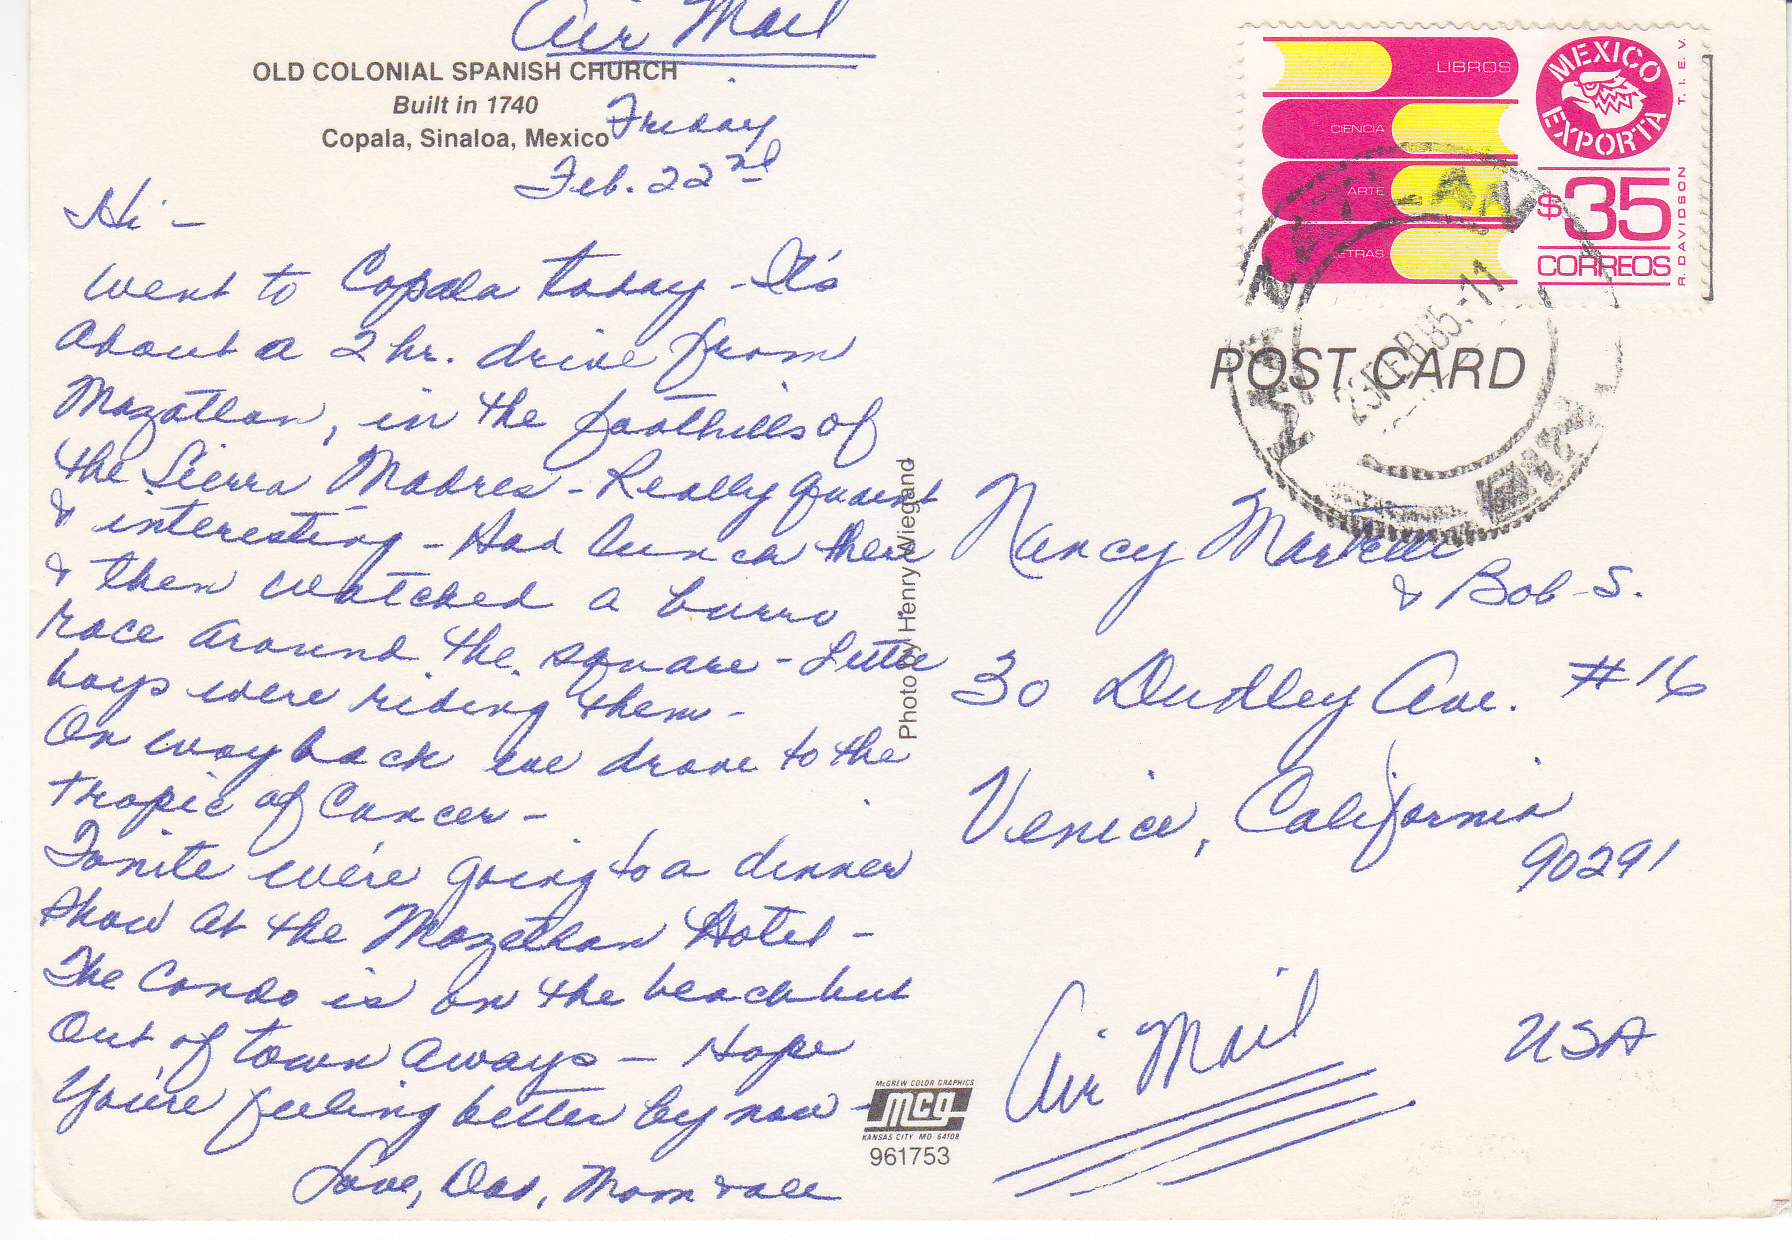 Air Mail
OLD COLONIAL SPANISH CHURCH
Built in 1740
Copala, Sinaloa, Mexico
Friday
Feb. 22nd
Hi –
Went to Copala today – It's
about a 2 hr. drive from
Mazatlan, in the foothills of
the Sierra Madres – Really quaint
& interesting – Had lunch there
& then watched a burro
race around the square – Little
boys were riding them –
On way back we drove to the
Tropic of Cancer –
Tonite we're going to a dinner
show at the Mazatlan Hotel –
The Condo is on the beach but
out of town aways – Hope
you're feeling better by now –
Love, Dad, Mom & all
Photo by Henry Wiegand
McGREW COLOR GRAPHICS
mcg
KANSAS CITY, MO 64108
961753
LIBROS
CIENCIA
ARTE
LETRAS
MEXICO
EXPORTA
$35
CORREOS
T. I. E. V.
R. DAVIDSON
MAZATLAN
SIN.
POST CARD
Nancy
& Bob S.
30 Dudley Ave. #16
Venice, California
90291
USA
Air Mail